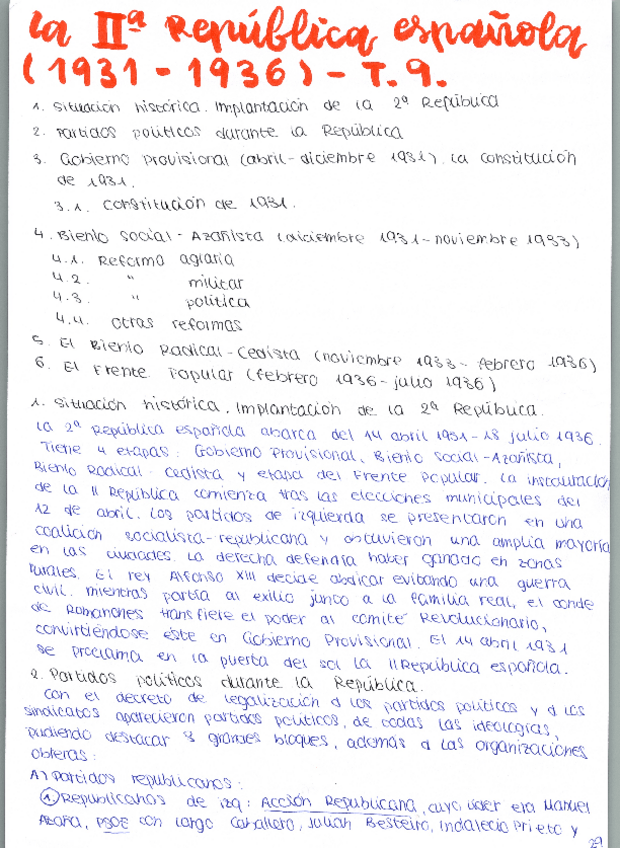 La IIª República española
(1931 - 1936) - T. 9.
1. Situación histórica. Implantación de la 2ª República
2. Partidos políticos durante la República
3. Gobierno Provisional (abril - diciembre 1931). La constitución
de 1931.
3.1. Constitución de 1931.
4. Bienio social - Azañista (diciembre 1931 - noviembre 1933)
4.1. Reforma agraria
4.2. " militar
4.3. " política
4.4. otras reformas
5. El Bienio Radical - Cedista (noviembre 1933 - febrero 1936)
6. El Frente Popular (febrero 1936 - julio 1936)
1. Situación histórica. Implantación de la 2ª República.
La 2ª República española abarca del 14 abril 1931 - 18 julio 1936.
Tiene 4 etapas: Gobierno Provisional, Bienio Social - Azañista,
Bienio Radical - cedista y etapa del Frente Popular. La instauración
de la II República comienza tras las elecciones municipales del
12 de abril. Los partidos de izquierda se presentaron en una
coalición socialista - republicana y obtuvieron una amplia mayoría
en las ciudades. La derecha defendía haber ganado en zonas
rurales. El rey Alfonso XIII decide abdicar evitando una guerra
civil. Mientras partía al exilio junto a la familia real, el conde
de Romanones transfiere el poder al comité Revolucionario,
convirtiéndose éste en Gobierno Provisional. El 14 abril 1931
se proclama en la puerta del sol la II República española.
2. Partidos políticos durante la República.
Con el decreto de legalización d los partidos políticos y d los
sindicatos aparecieron partidos políticos, de todas las ideologías,
pudiendo destacar 3 grandes bloques, además d las organizaciones
obreras:
A) Partidos republicanos:
1. Republicanos de izq: Acción Republicana, cuyo líder era Manuel
Azaña, PSOE con Largo Caballero, Julián Besteiro, Indalecio Prieto y
29